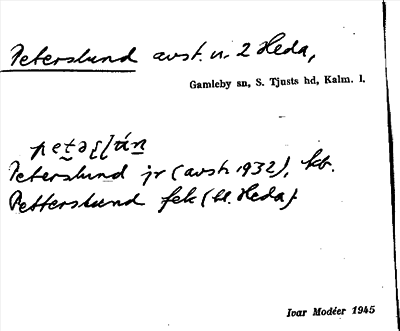 Peterslund avst. u. 2 Heda,
Gamleby sn, S. Tjusts hd, Kalm. l.
Peterslund jr (avst. 1932), kb.
Petterslund fek (u. Heda).
Ivar Modéer 1945